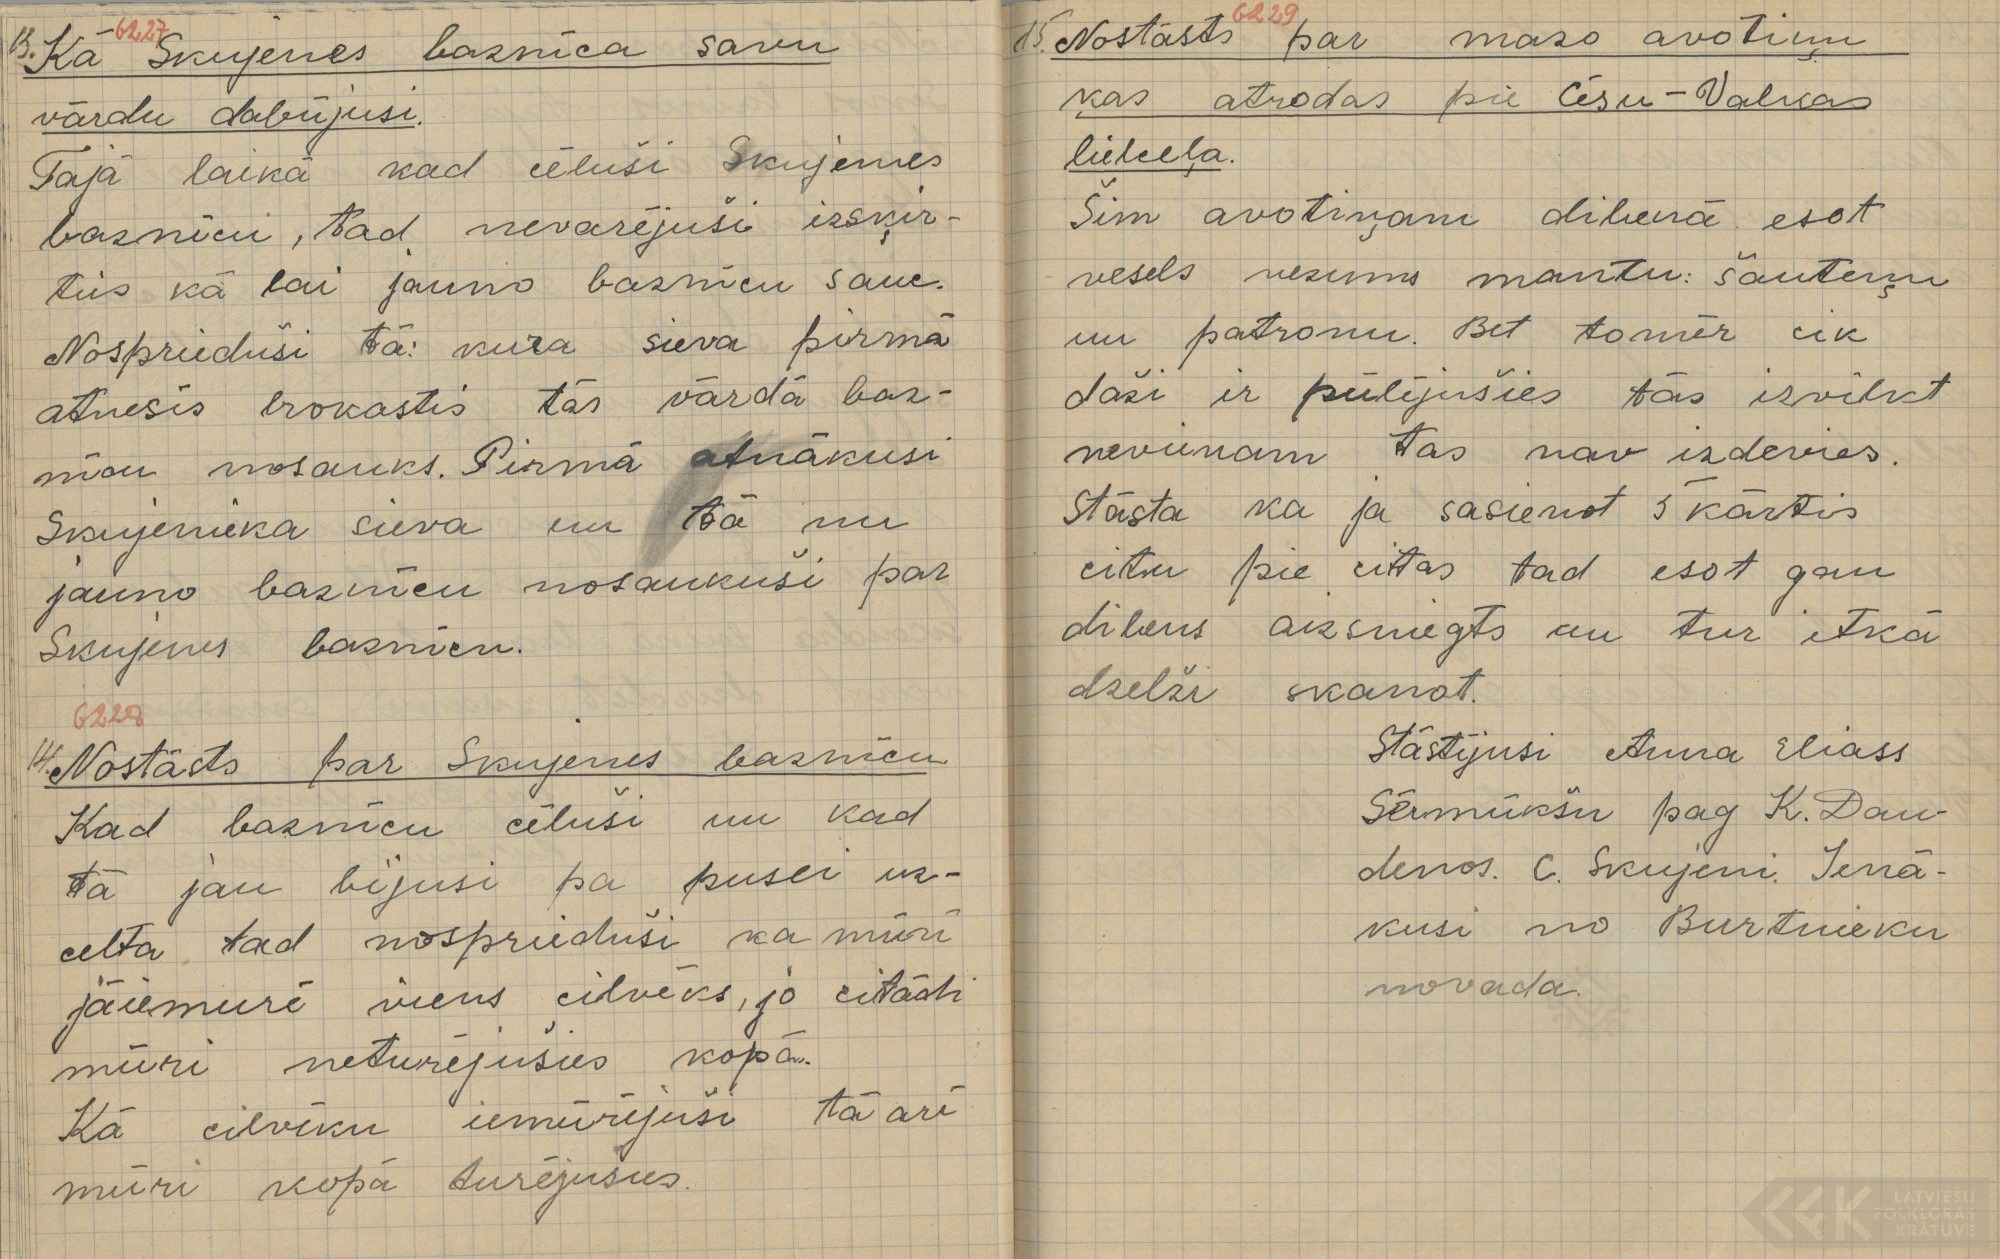 6227
13. Kā Skujenes baznīca savu
vārdu dabūjusi.
Tajā laikā kad cēluši Skujenes
baznīcu, tad nevarējuši izšķir-
ties kā lai jauno baznīcu sauc.
Nosprieduši tā: kura sieva pirmā
atnesīs brokastis tās vārdā baz-
nīcu nosauks. Pirmā atnākusi
Skujenieka sieva un tā nu
jauno baznīcu nosaukuši par
Skujenes baznīcu.
6228
14. Nostāsts par Skujenes baznīcu
Kad baznīcu cēluši un kad
tā jau bijusi pa pusei uz-
celta tad nosprieduši ka mūrī
jāiemūrē viens cilvēks, jo citādi
mūri neturējušies kopā.
Kā cilvēku iemūrējuši tā arī
mūri kopā turējušies.
6229
15. Nostāsts par mazo avotiņu
kas atrodas pie Cēsu-Valkas
lielceļa.
Šim avotiņam dibenā esot
vesels vezums mantu: šauteņu
un patronu. Bet tomēr cik
daži ir pūlējušies tās izvilkt
nevienam tas nav izdevies.
Stāsta ka ja sasienot 5 kārtis
citu pie citas tad esot gan
dibens aizsniegts un tur itkā
dzelži skanot.
Stāstijusi Anna Eliass
Sērmūkšu pag K. Dau-
denos. C. Skujeni. Ienā-
kusi no Burtnieku
novada.
LATVIEŠU
FOLKLORAS
KRĀTUVE